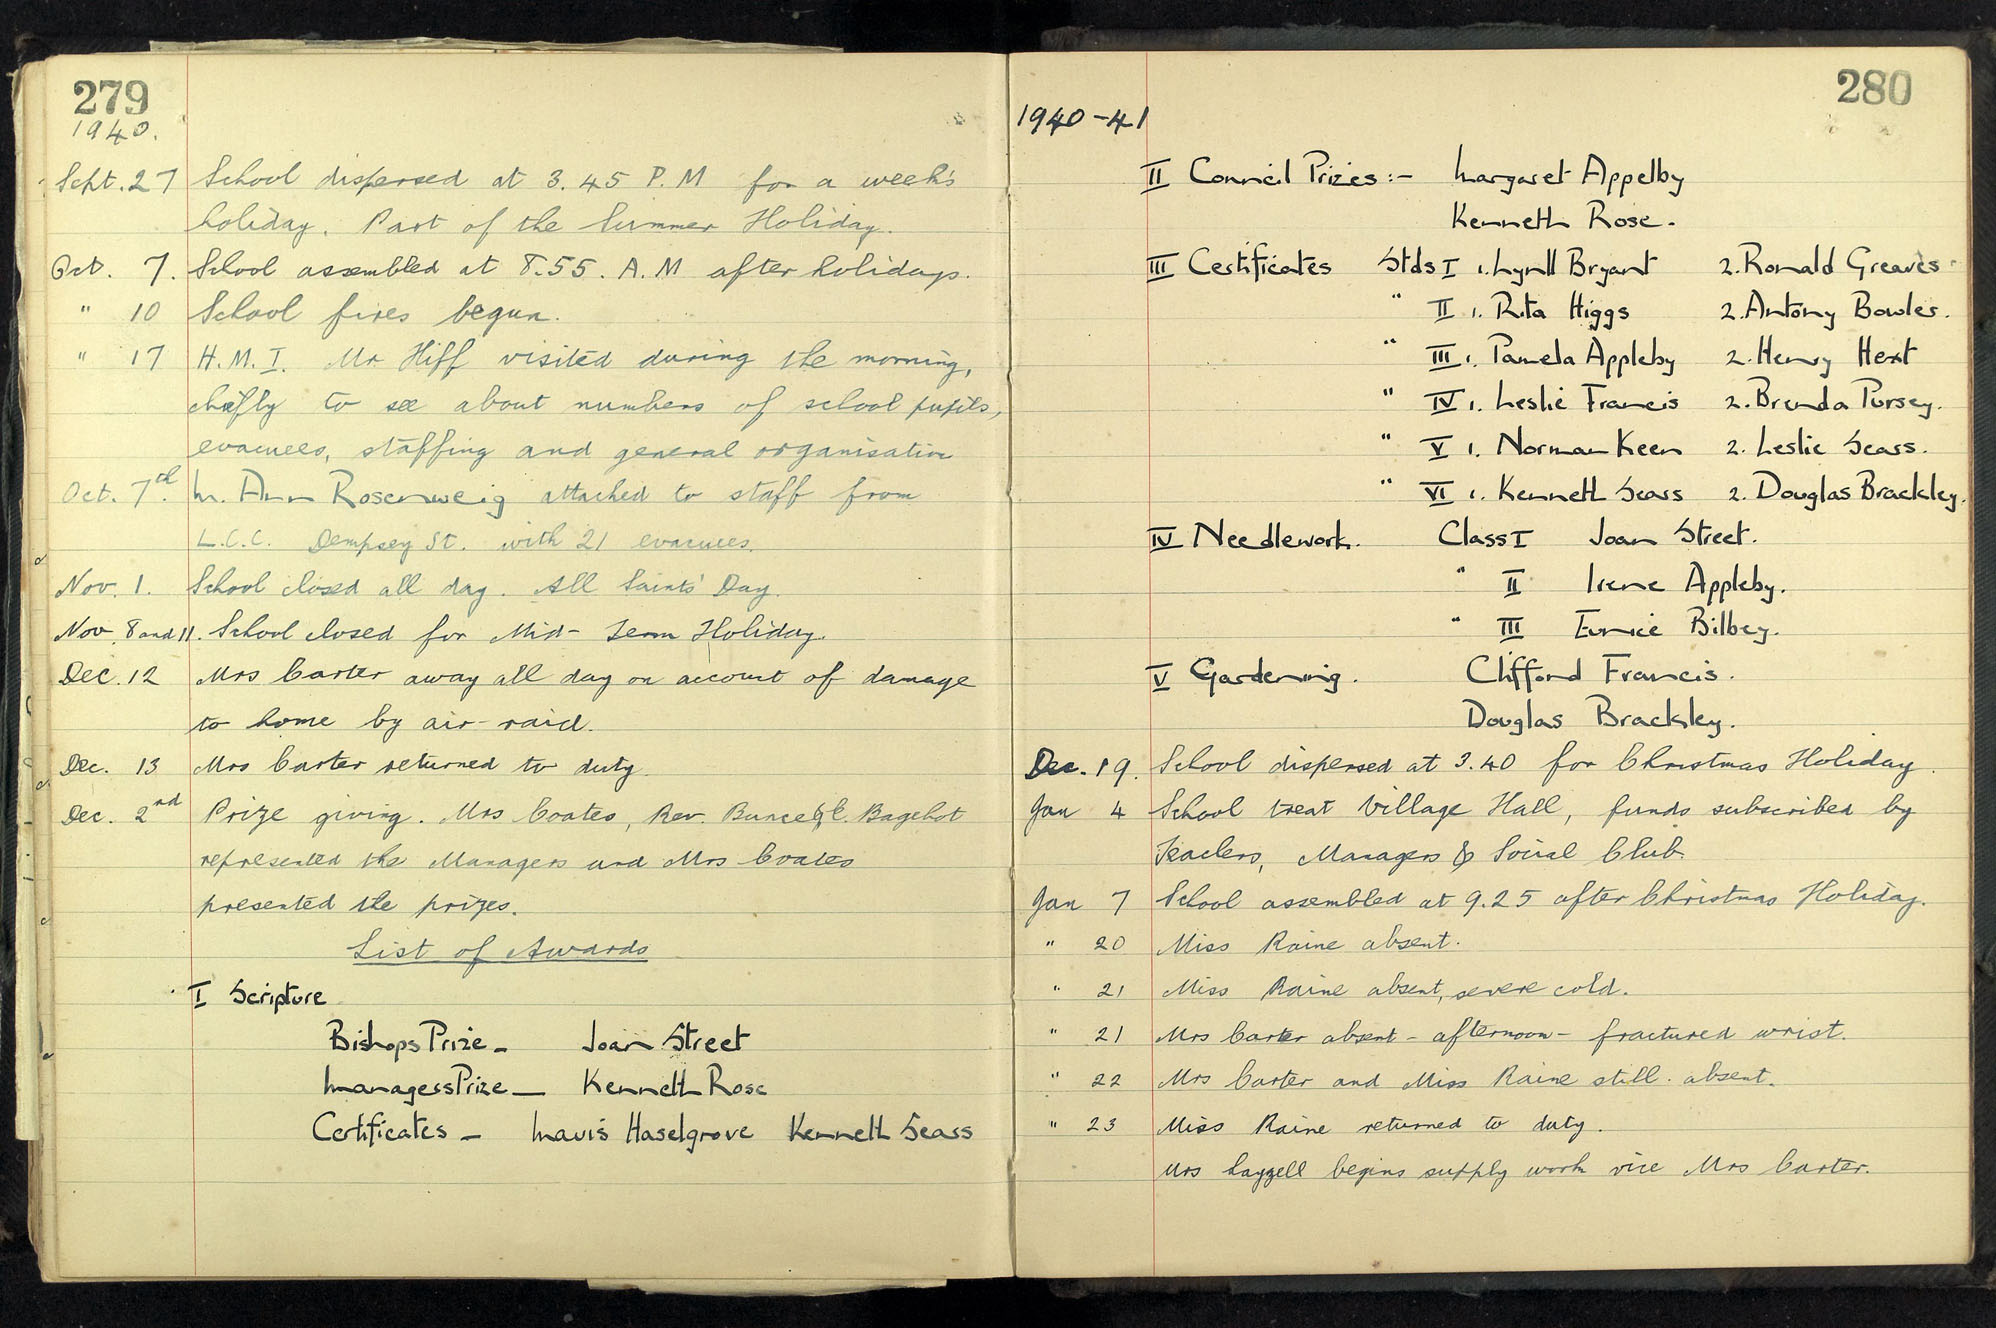 279
1940.
Sept. 27 School dispersed at 3.45 P.M for a week's
holiday. Part of the Summer Holiday.
Oct. 7. School assembled at 8.55. A.M after holidays.
" 10 School fires begun.
" 17 H.M.I. Mr Hiff visited during the morning,
chiefly to see about numbers of school pupils,
evacuees, staffing and general organisation
Oct. 7th. M. Ann Rosenweig attached to staff from
L.C.C. Dempsey St. with 21 evacuees.
Nov. 1. School closed all day. All Saints' Day.
Nov. 8 and 11. School closed for Mid-Term Holiday.
Dec. 12 Mrs Carter away all day on account of damage
to home by air-raid.
Dec. 13 Mrs Carter returned to duty.
Dec. 2nd Prize giving. Mrs Coates, Rev. Bunce & C. Bagehot
represented the Managers and Mrs Coates
presented the prizes.
List of Awards
I Scripture
Bishops Prize - Joan Street
Managers Prize - Kenneth Rose
Certificates - Mavis Haselgrove Kenneth Sears
280
1940-41
II Council Prizes:- Margaret Appelby
Kenneth Rose.
III Certificates Stds I 1. Lynll Bryant 2. Ronald Greaves
" II 1. Rita Higgs 2. Antony Bowler.
" III 1. Pamela Appleby 2. Henry Hext
" IV 1. Leslie Francis 2. Brenda Pursey.
" V 1. Norman Keen 2. Leslie Sears.
" VI 1. Kenneth Sears 2. Douglas Brackley.
IV Needlework. Class I Joan Street.
" II Irene Appleby.
" III Eunice Bilbey.
V Gardening. Clifford Francis.
Douglas Brackley.
Dec. 19. School dispersed at 3.40 for Christmas Holiday.
Jan 4 School treat Village Hall, funds subscribed by
Teachers, Managers & Social Club.
Jan 7 School assembled at 9.25 after Christmas Holiday.
" 20 Miss Raine absent.
" 21 Miss Raine absent, severe cold.
" 21 Mrs Carter absent - afternoon - fractured wrist.
" 22 Mrs Carter and Miss Raine still absent.
" 23 Miss Raine returned to duty.
Mrs Layzell begins supply work vice Mrs Carter.